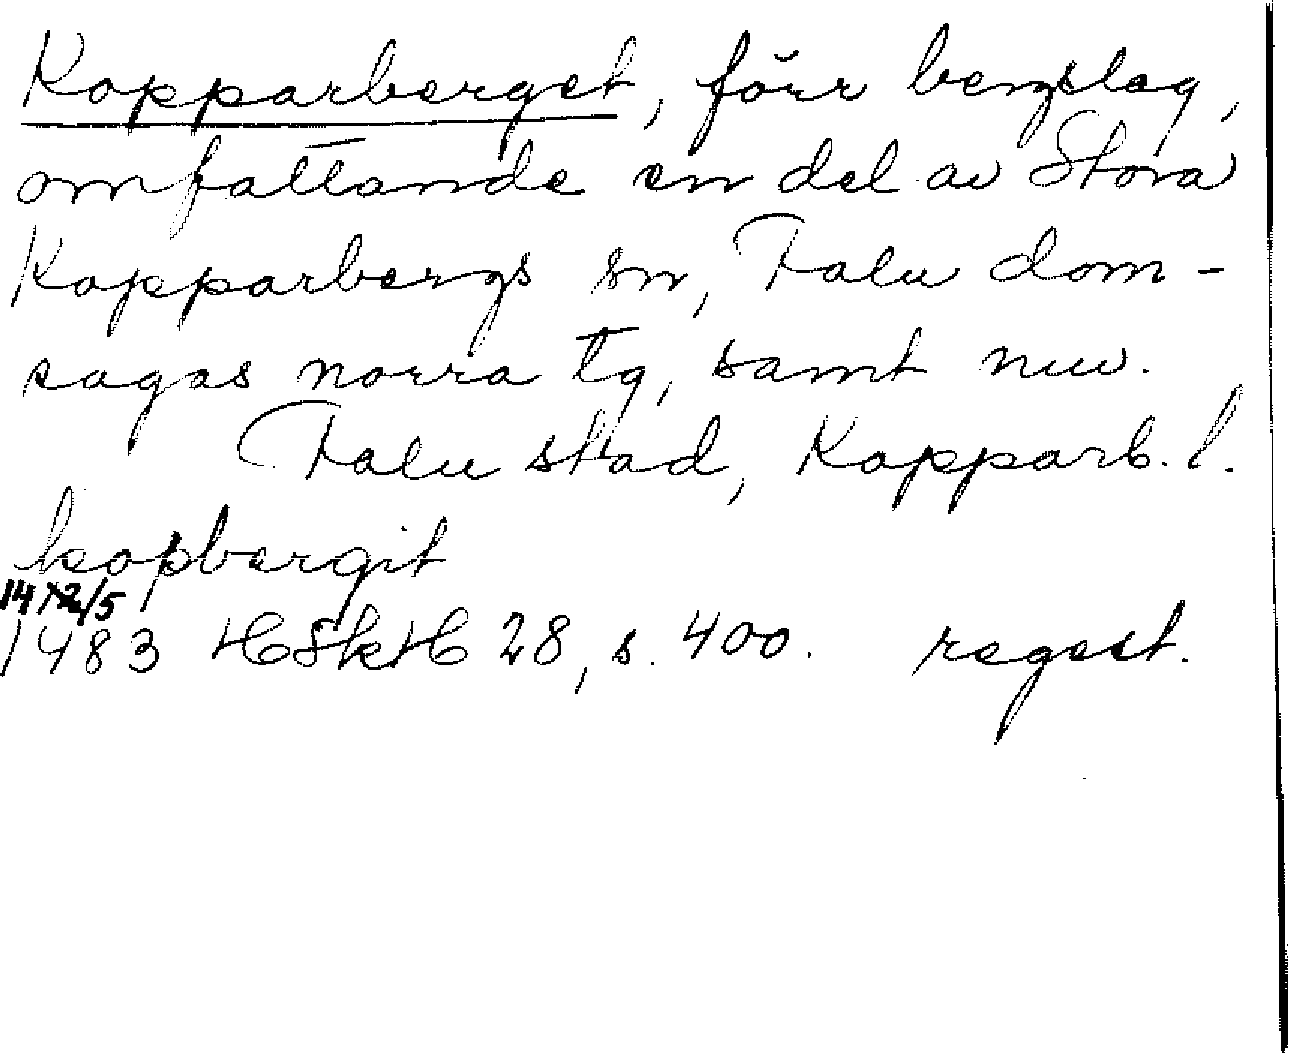 Kopparberget, förr bergslag,
omfattande en del av Stora
Kopparbergs sn, Falu dom-
sagas norra tg, samt nuv.
Falu stad, Kopparb. l.
kopbergit
1483 HSkH 28, s. 400. regest.